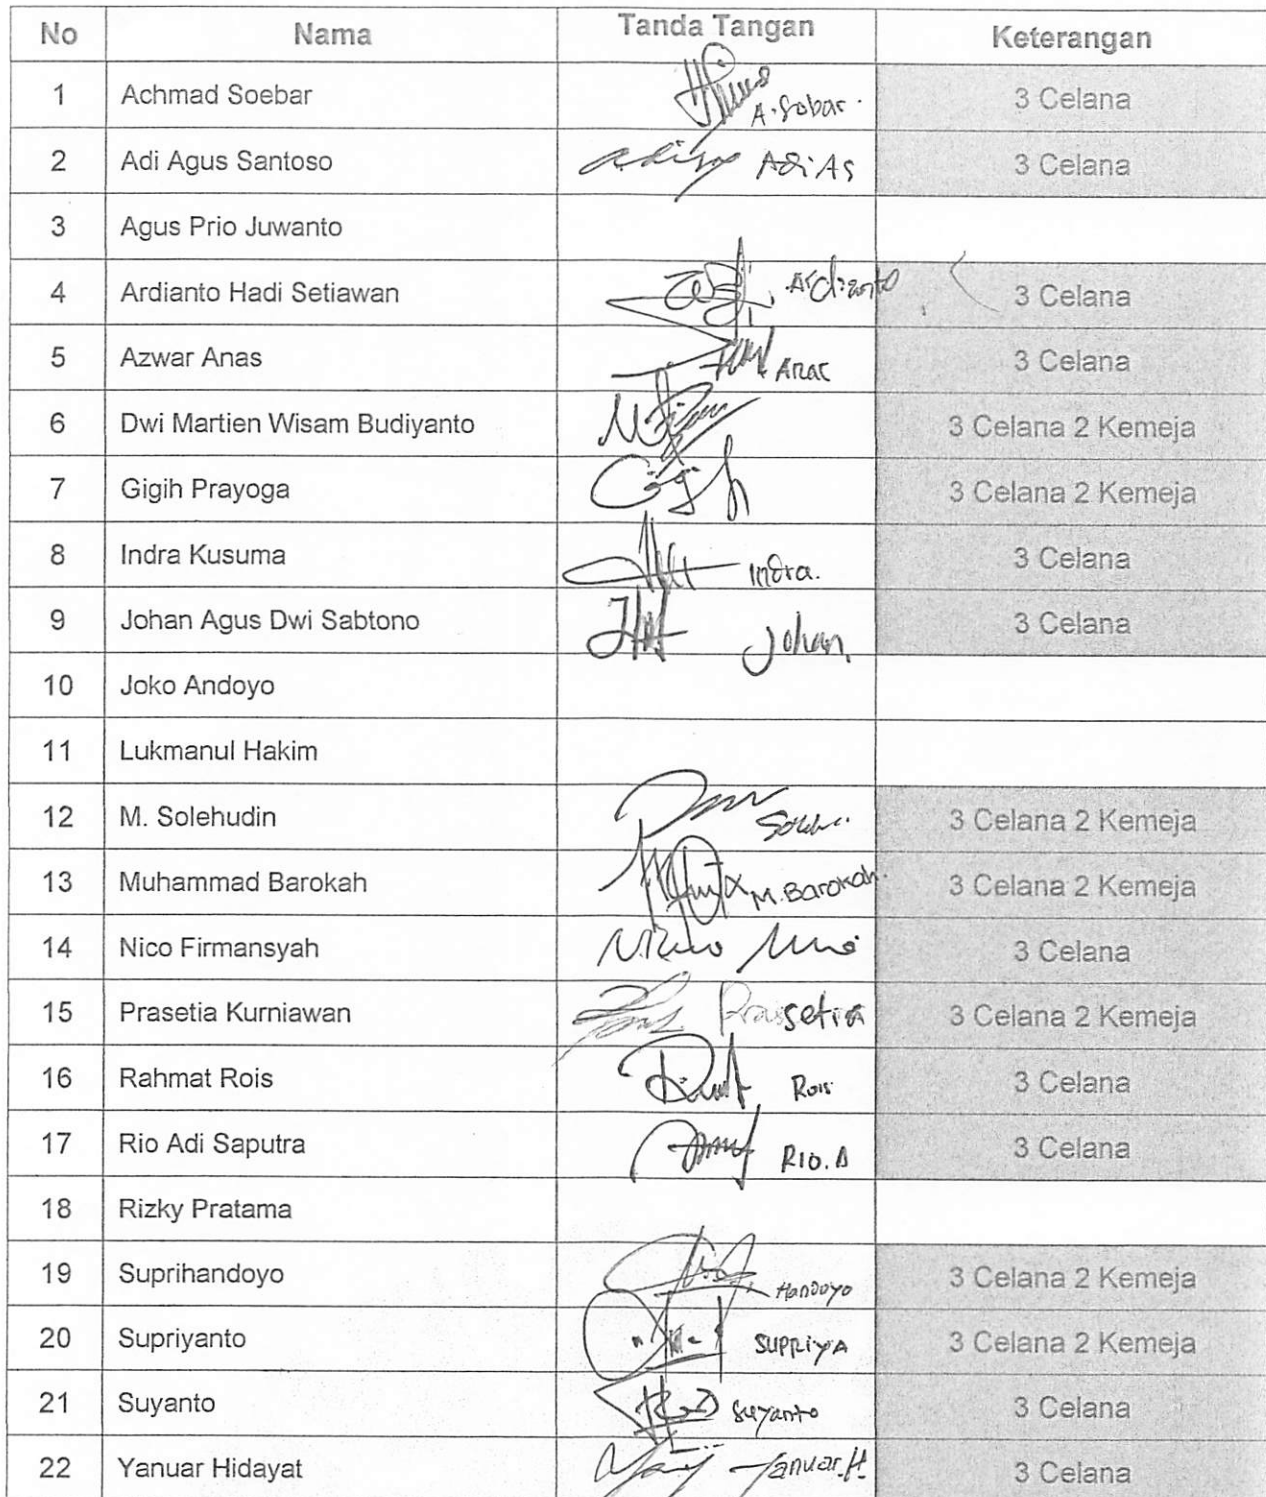 No Nama Tanda Tangan Keterangan
1 Achmad Soebar A. Sobar. 3 Celana
2 Adi Agus Santoso Adi AS 3 Celana
3 Agus Prio Juwanto
4 Ardianto Hadi Setiawan Ardianto 3 Celana
5 Azwar Anas Anas 3 Celana
6 Dwi Martien Wisam Budiyanto 3 Celana 2 Kemeja
7 Gigih Prayoga Gigih 3 Celana 2 Kemeja
8 Indra Kusuma Indra. 3 Celana
9 Johan Agus Dwi Sabtono Johan 3 Celana
10 Joko Andoyo
11 Lukmanul Hakim
12 M. Solehudin 3 Celana 2 Kemeja
13 Muhammad Barokah M. Barokah. 3 Celana 2 Kemeja
14 Nico Firmansyah 3 Celana
15 Prasetia Kurniawan Prasetia 3 Celana 2 Kemeja
16 Rahmat Rois Rois 3 Celana
17 Rio Adi Saputra RIO. A 3 Celana
18 Rizky Pratama
19 Suprihandoyo Handoyo 3 Celana 2 Kemeja
20 Supriyanto SUPRIYA 3 Celana 2 Kemeja
21 Suyanto Suyanto 3 Celana
22 Yanuar Hidayat Yanuar.H 3 Celana